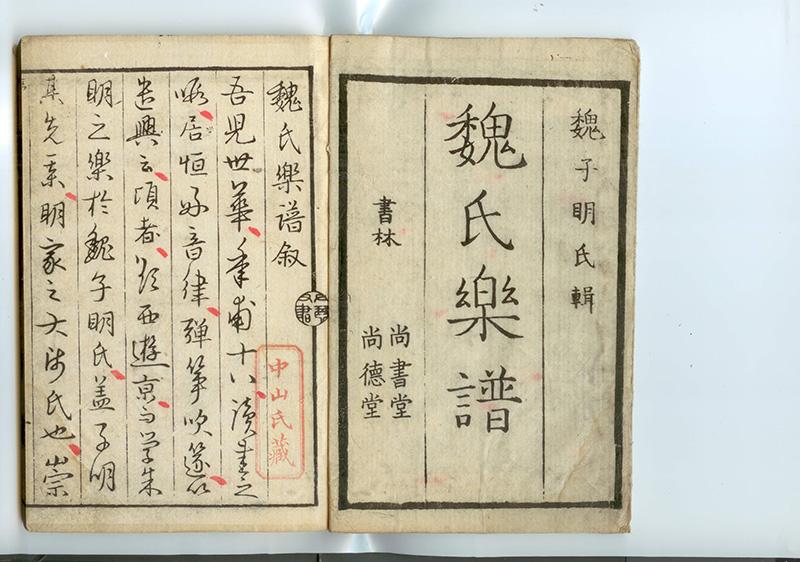 魏子明氏輯
魏氏樂譜
書林
尚書堂
尚德堂
魏氏樂譜叙
吾兒世華年甫十八讀書之
暇居恒好音律彈箏吹篴以
遣興云頃者从西遊京師學朱
明之樂於魏子明氏蓋子明
其先系明家之大師氏也崇
中山氏藏